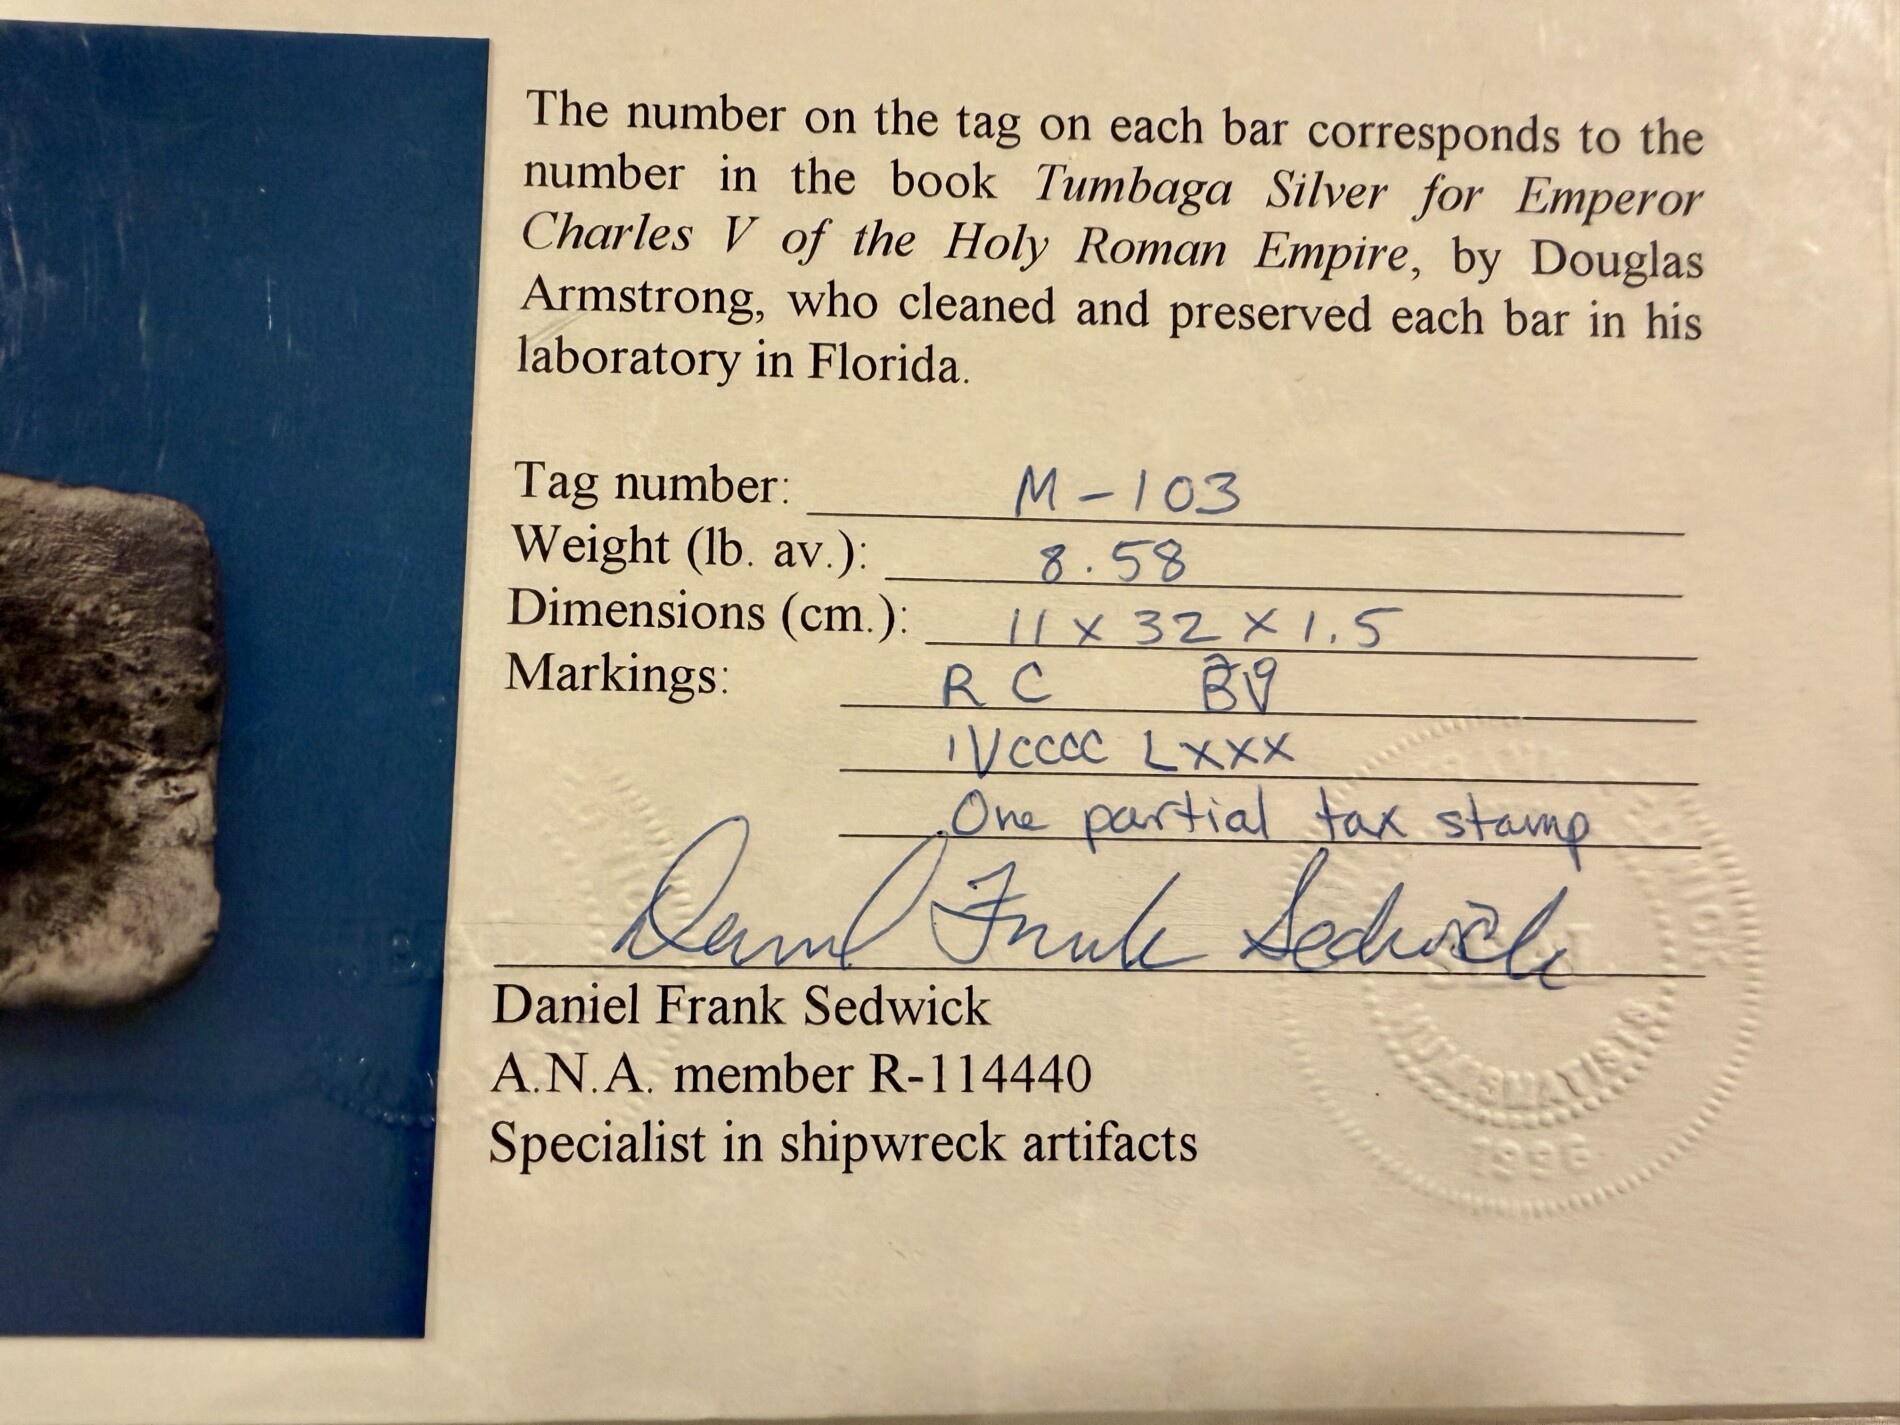 The number on the tag on each bar corresponds to the
number in the book Tumbaga Silver for Emperor
Charles V of the Holy Roman Empire, by Douglas
Armstrong, who cleaned and preserved each bar in his
laboratory in Florida.
Tag number: M-103
Weight (lb. av.): 8.58
Dimensions (cm.): 11 x 32 x 1.5
Markings: R C
IVCCCC LXXX
One partial tax stamp
Daniel Frank Sedwick
Daniel Frank Sedwick
A.N.A. member R-114440
Specialist in shipwreck artifacts
1996